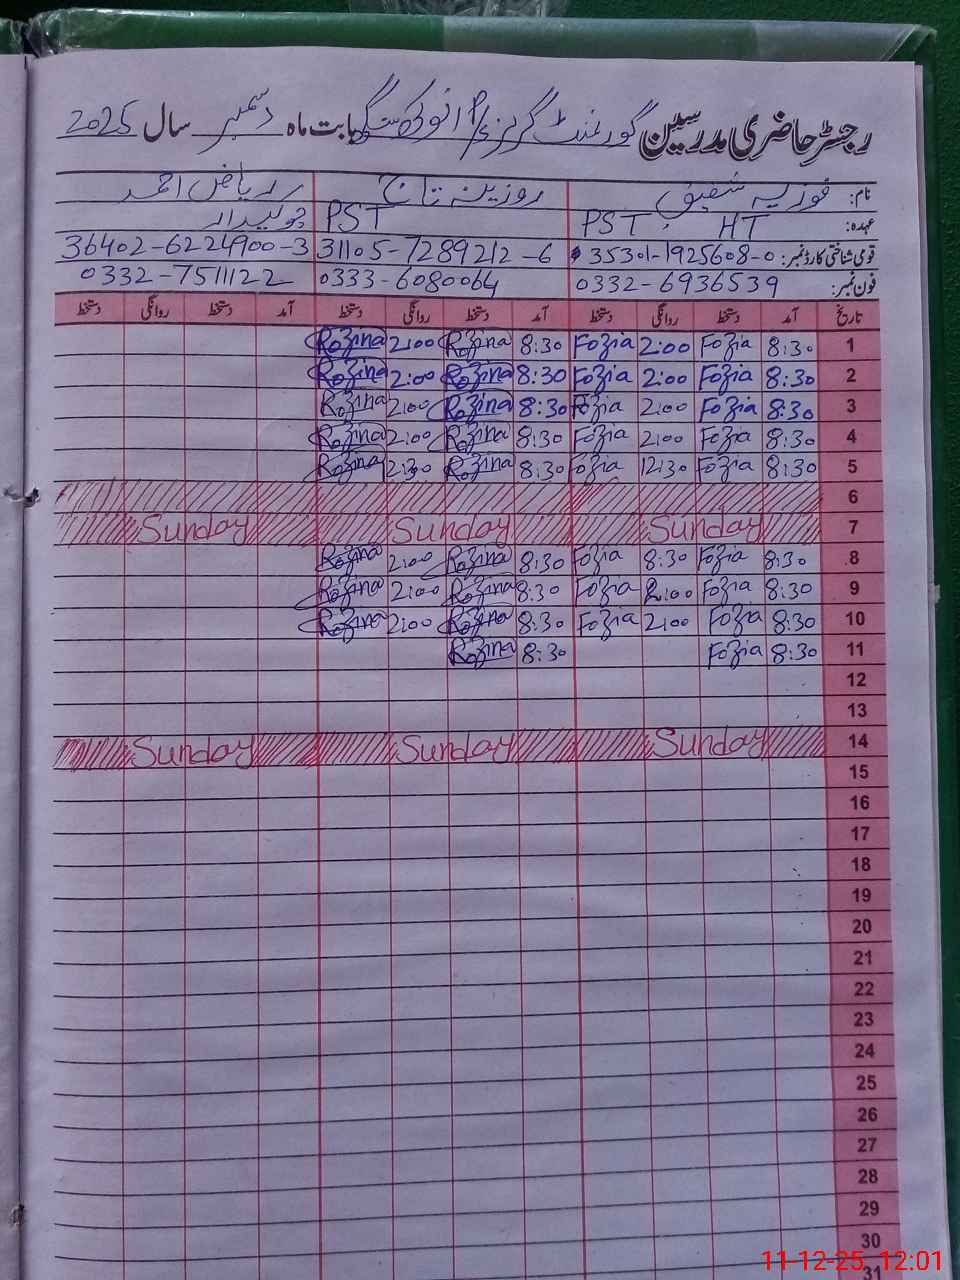 رجسٹر حاضری مدرسین گورنمنٹ گرلز بابت ماہ دسمبر سال 2025
نام: فوزیہ شفیق روزینہ تاج ریاض احمد
عہدہ: PST HT PST چوکیدار
قومی شناختی کارڈ نمبر: 35301-1925608-0 31105-7289212-6 36402-6224900-3
فون نمبر: 0332-6936539 0333-6080064 0332-7511122
تاریخ آمد دستخط روانگی دستخط آمد دستخط روانگی دستخط آمد دستخط روانگی دستخط
1 8:30 Fozia 2:00 Fozia 8:30 Rozina 2:00 Rozina
2 8:30 Fozia 2:00 Fozia 8:30 Rozina 2:00 Rozina
3 8:30 Fozia 2:00 Fozia 8:30 Rozina 2:00 Rozina
4 8:30 Fozia 2:00 Fozia 8:30 Rozina 2:00 Rozina
5 8:30 Fozia 12:30 Fozia 8:30 Rozina Rozina
6
7 Sunday Sunday Sunday
8 8:30 Fozia 8:30 Fozia 8:30 Rozina 2:00 Rozina
9 8:30 Fozia 2:00 Fozia 8:30 Rozina 2:00 Rozina
10 8:30 Fozia 2:00 Fozia 8:30 Rozina 2:00 Rozina
11 8:30 Fozia 8:30 Rozina
12
13
14 Sunday Sunday Sunday
15
16
17
18
19
20
21
22
23
24
25
26
27
28
29
30
31
11-12-25 12:01